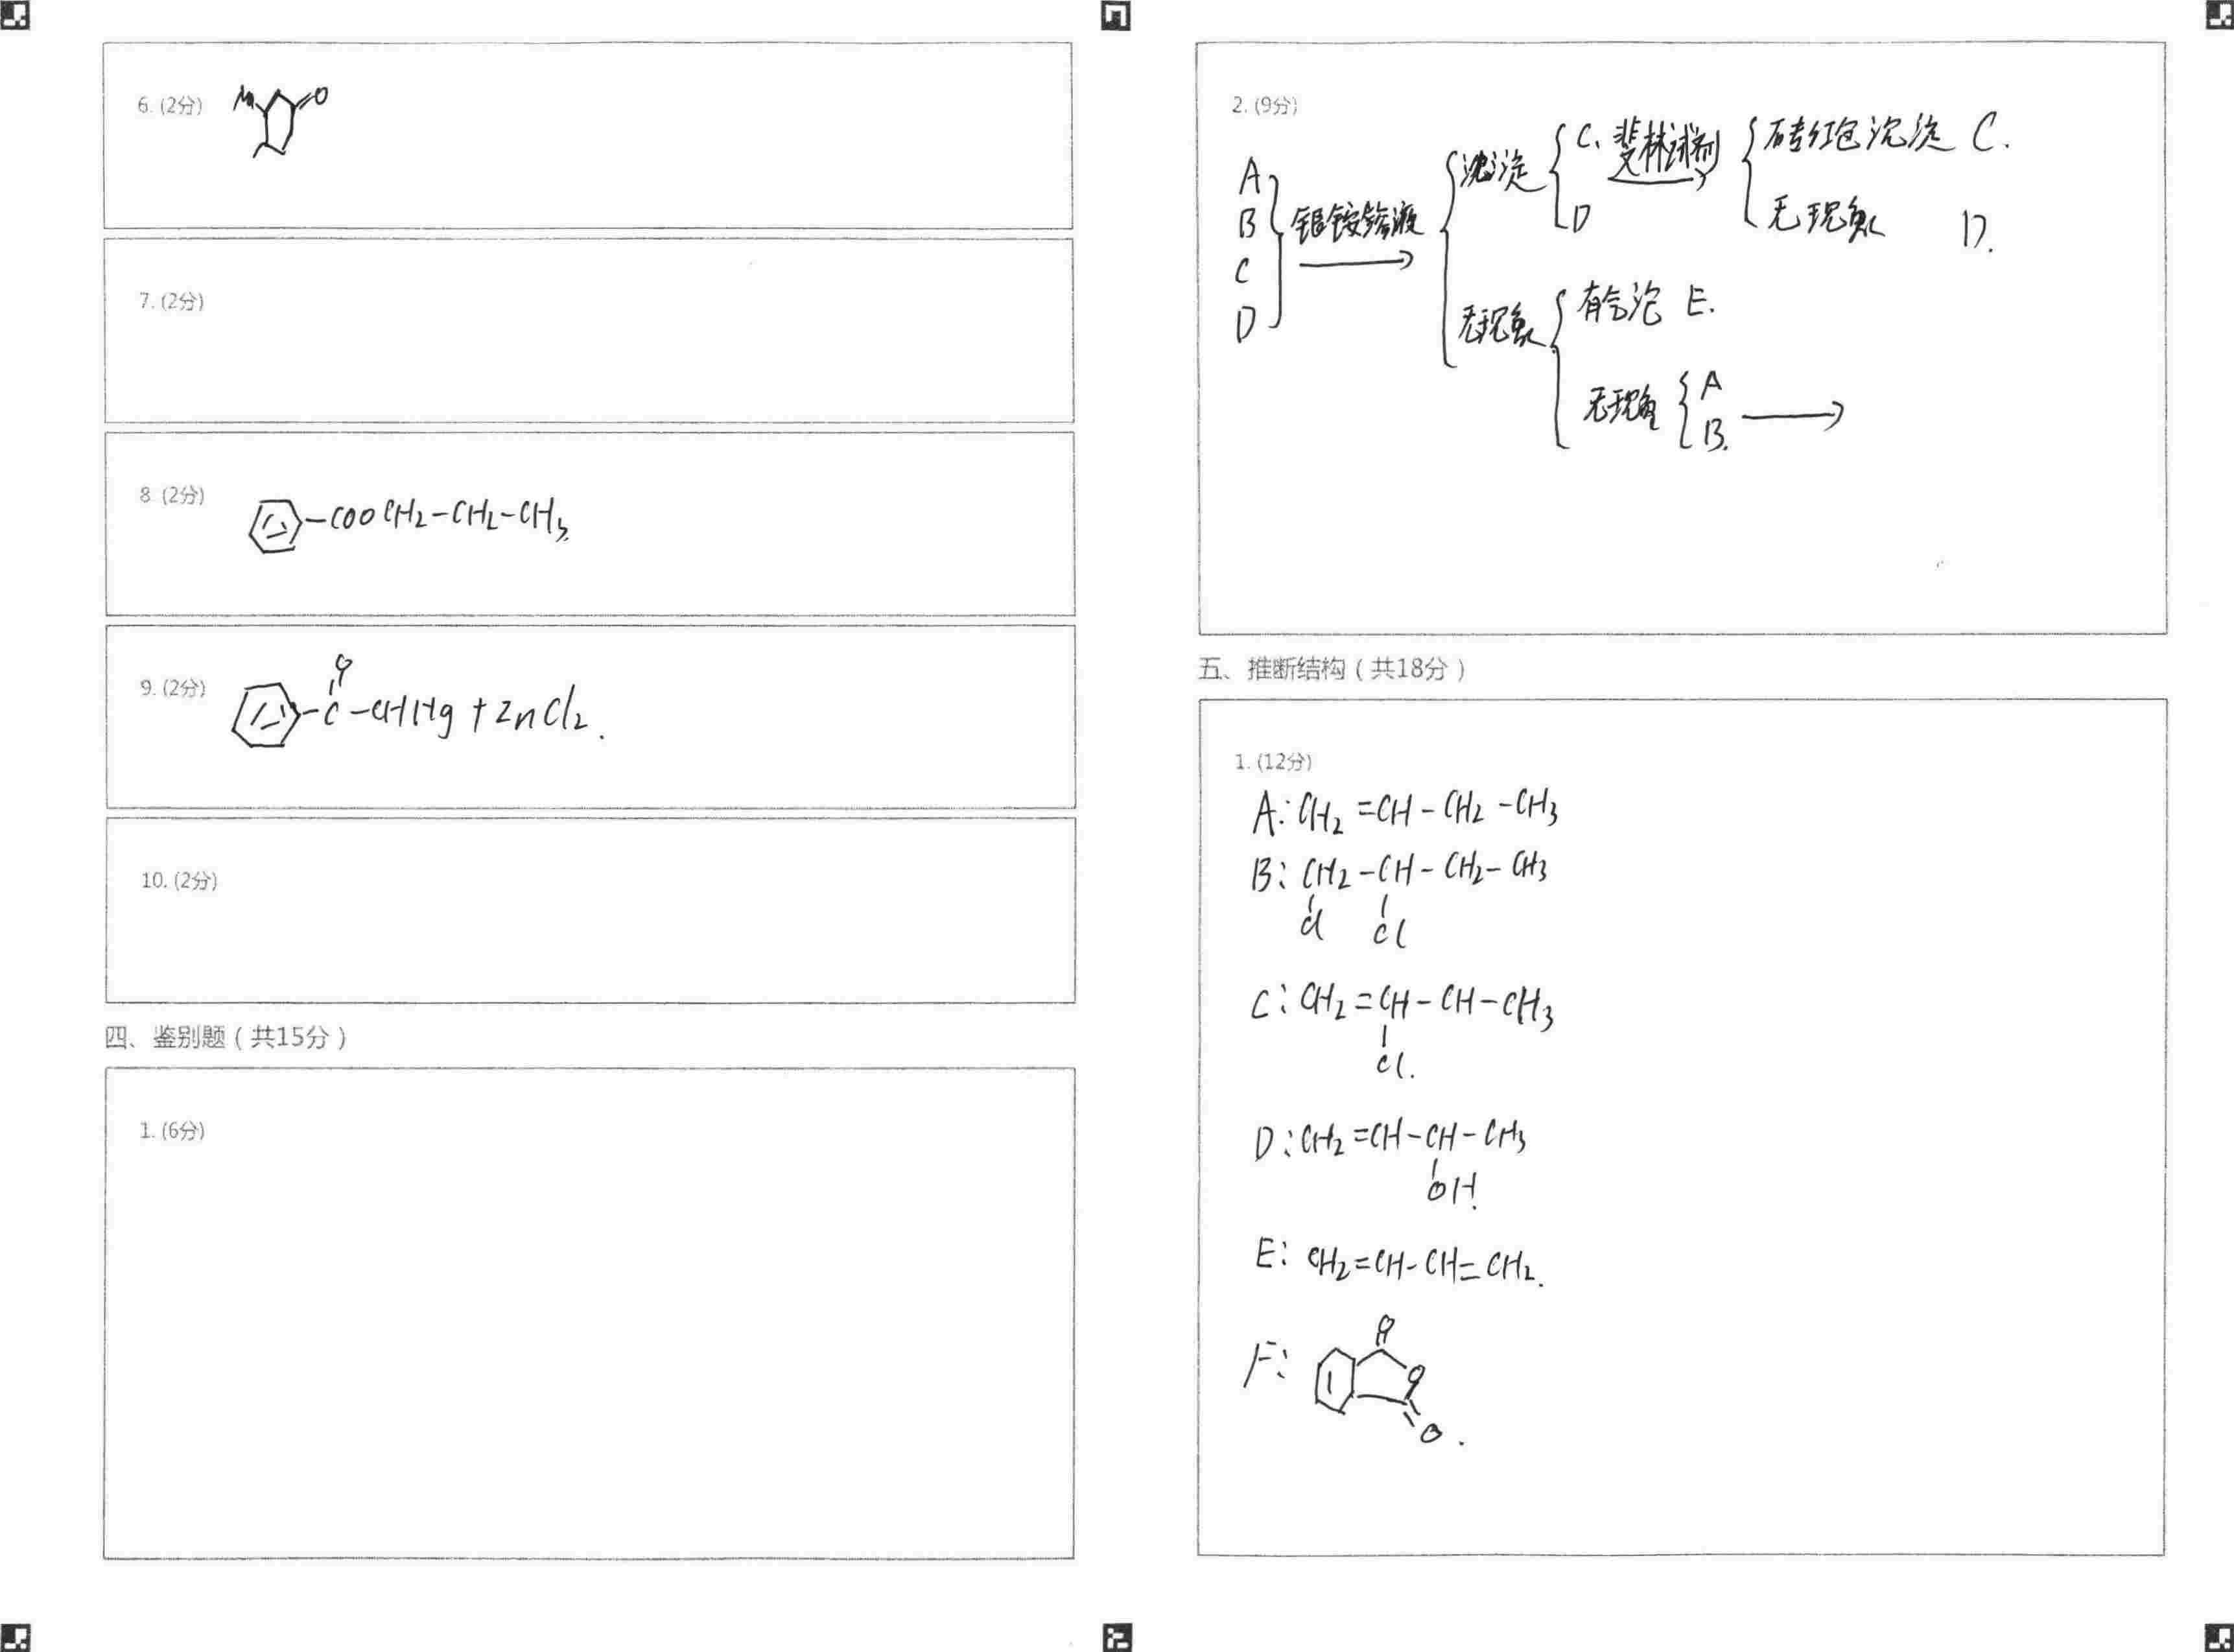 6. (2分)
O
7. (2分)
8. (2分)
-COOCH2-CH2-CH3
9. (2分)
O
-C-CHHg + ZnCl2.
10. (2分)
四、鉴别题（共15分）
1. (6分)
2. (9分)
A
B
C
D
银铵溶液
沉淀
C、
D
斐林试剂
砖红色沉淀 C.
无现象 D.
无现象
有气泡 E.
无现象
A
B.
五、推断结构（共18分）
1. (12分)
A: CH2=CH-CH2-CH3
B: CH2-CH-CH2-CH3
Cl Cl
C: CH2=CH-CH-CH3
Cl.
D: CH2=CH-CH-CH3
OH.
E: CH2=CH-CH=CH2.
F:
O
O
O.